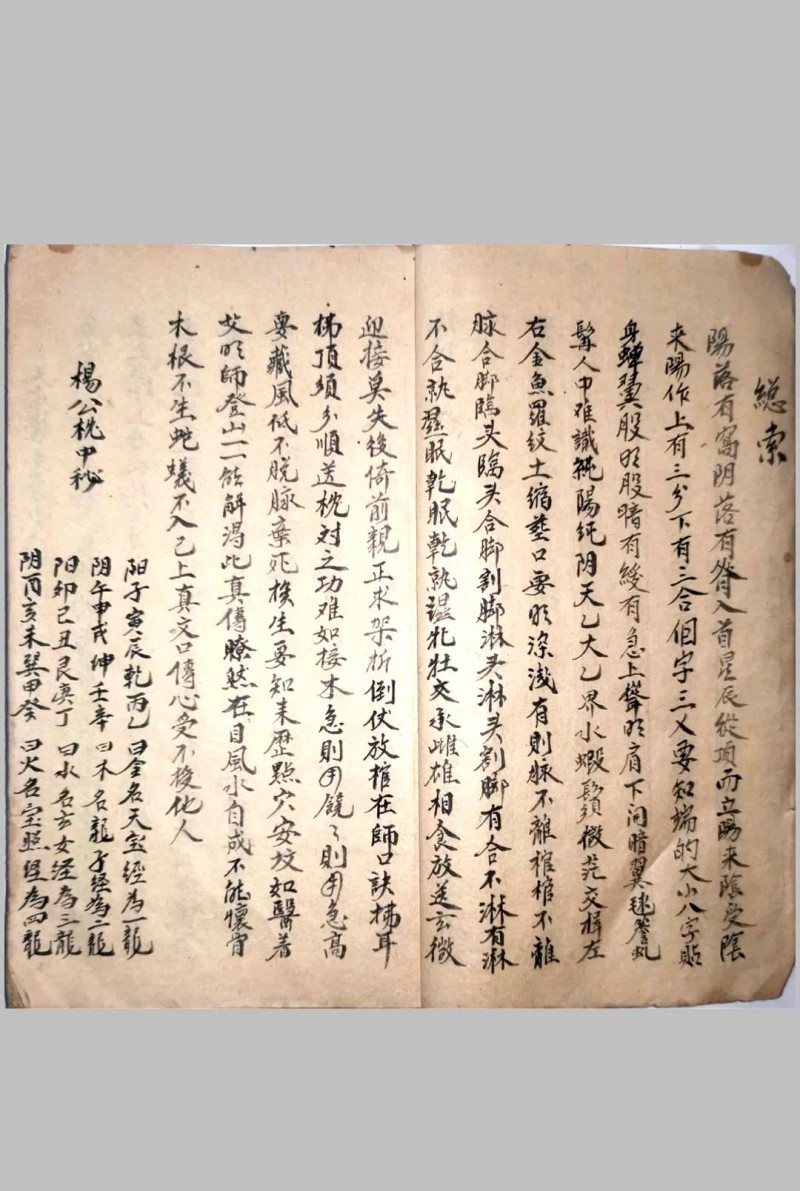 總索
陽落有窩阴落有脊入首星辰從項而立陽来陰受陰
来陽作上有三分下有三合個字三乂要知端的大小八字貼
身蟬翼股明股暗有緩有急上聳明肩下闪暗翼毬簷虬
髯人中难識純陽純阴天乙太乙界水蝦鬚微茫交揖左
右金魚羅紋土缩葬口要明深浅有則脉不離棺棺不離
脉合脚臨头臨头合脚割脚淋头淋头割脚有合不淋有淋
不合就濕眠乾眠乾就濕牝牡交承雌雄相食放送玄微
迎接莫失後倚前親正求架折倒仗放棺在師口訣梯耳
梯頂須分順送枕对之功难如接木急則用饒々則用急高
要藏風低不脱脉棄死挨生要知来歷點穴安坟如醫着
艾明師登山一一能解渴此真傳瞭然在目風水自成不能懷育
木根不生蛇蟻不入已上真文口傳心受不授他人
楊公枕中秘
阳子寅辰乾丙乙曰金名天宝經為一龍
阴午申戌坤壬辛曰木名龍子経為二龍
阳卯巳丑艮庚丁曰水名玄女経為三龍
阴酉亥未巽甲癸曰火名宝照経為四龍